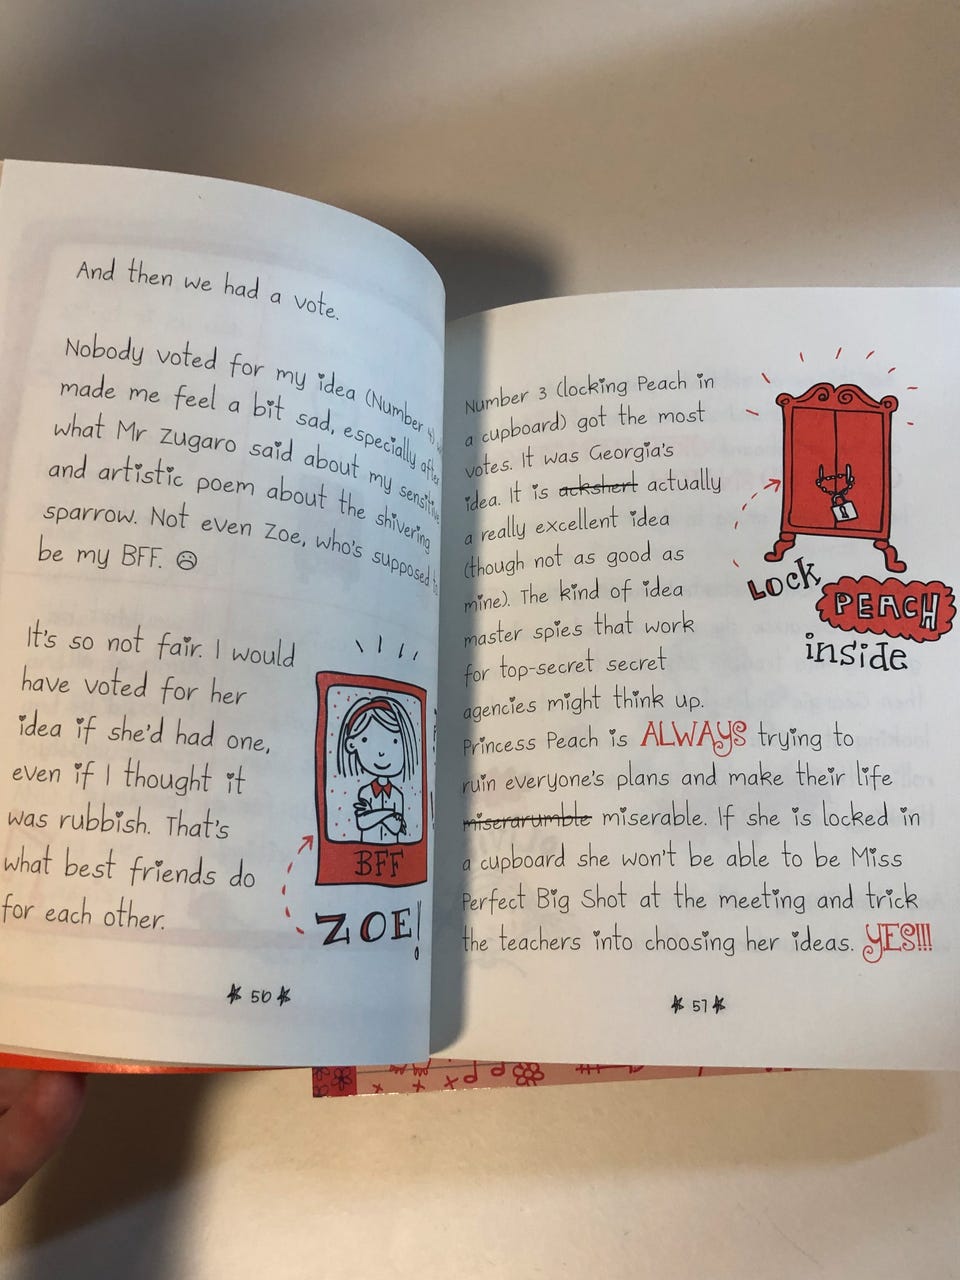 And then we had a vote.
Nobody voted for my idea (Number 4)
made me feel a bit sad, especially after
what Mr Zugaro said about my sensitive
and artistic poem about the shivering
sparrow. Not even Zoe, who's supposed to
be my BFF. ☹
It's so not fair. I would
have voted for her
idea if she'd had one,
even if I thought it
was rubbish. That's
what best friends do
for each other.
BFF
ZOE!
56
Number 3 (locking Peach in
a cupboard) got the most
votes. It was Georgia's
idea. It is ackshert actually
a really excellent idea
(though not as good as
mine). The kind of idea
master spies that work
for top-secret secret
agencies might think up.
Princess Peach is ALWAYS trying to
ruin everyone's plans and make their life
miserarumble miserable. If she is locked in
a cupboard she won't be able to be Miss
Perfect Big Shot at the meeting and trick
the teachers into choosing her ideas. YES!!!
LOCK
PEACH
inside
57